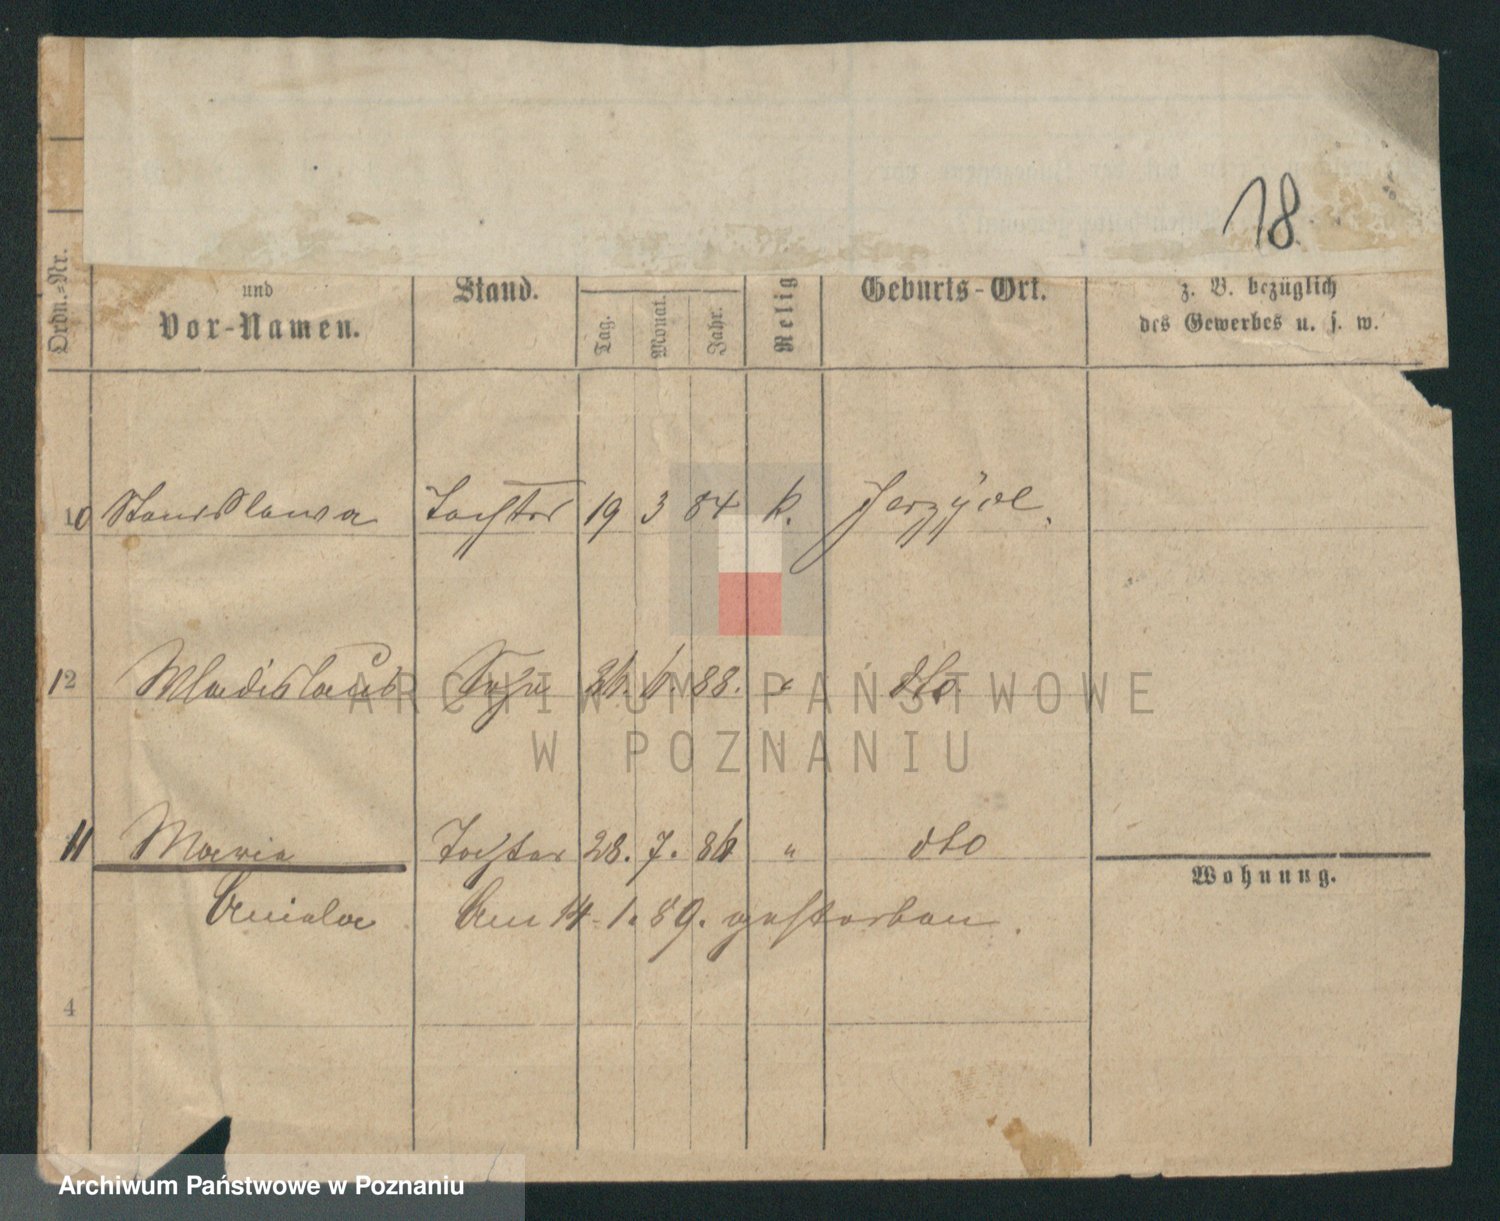 18.
Ordn.-Nr.
und
Vor-Namen.
Stand.
Tag.
Monat.
Jahr.
Relig
Geburts-Ort.
z. B. bezüglich
des Gewerbes u. s. w.
10 Stanislawa Tochter 19 3 84 k. Jerzyce
12 Wladislaus Sohn 26. 6. 88. " dto
11 Maria Tochter 28. 7. 86 " dto
Wohnung.
Aniela Am 14. 1. 89. gestorben.
4
ARCHIWUM PAŃSTWOWE
W POZNANIU
Archiwum Państwowe w Poznaniu